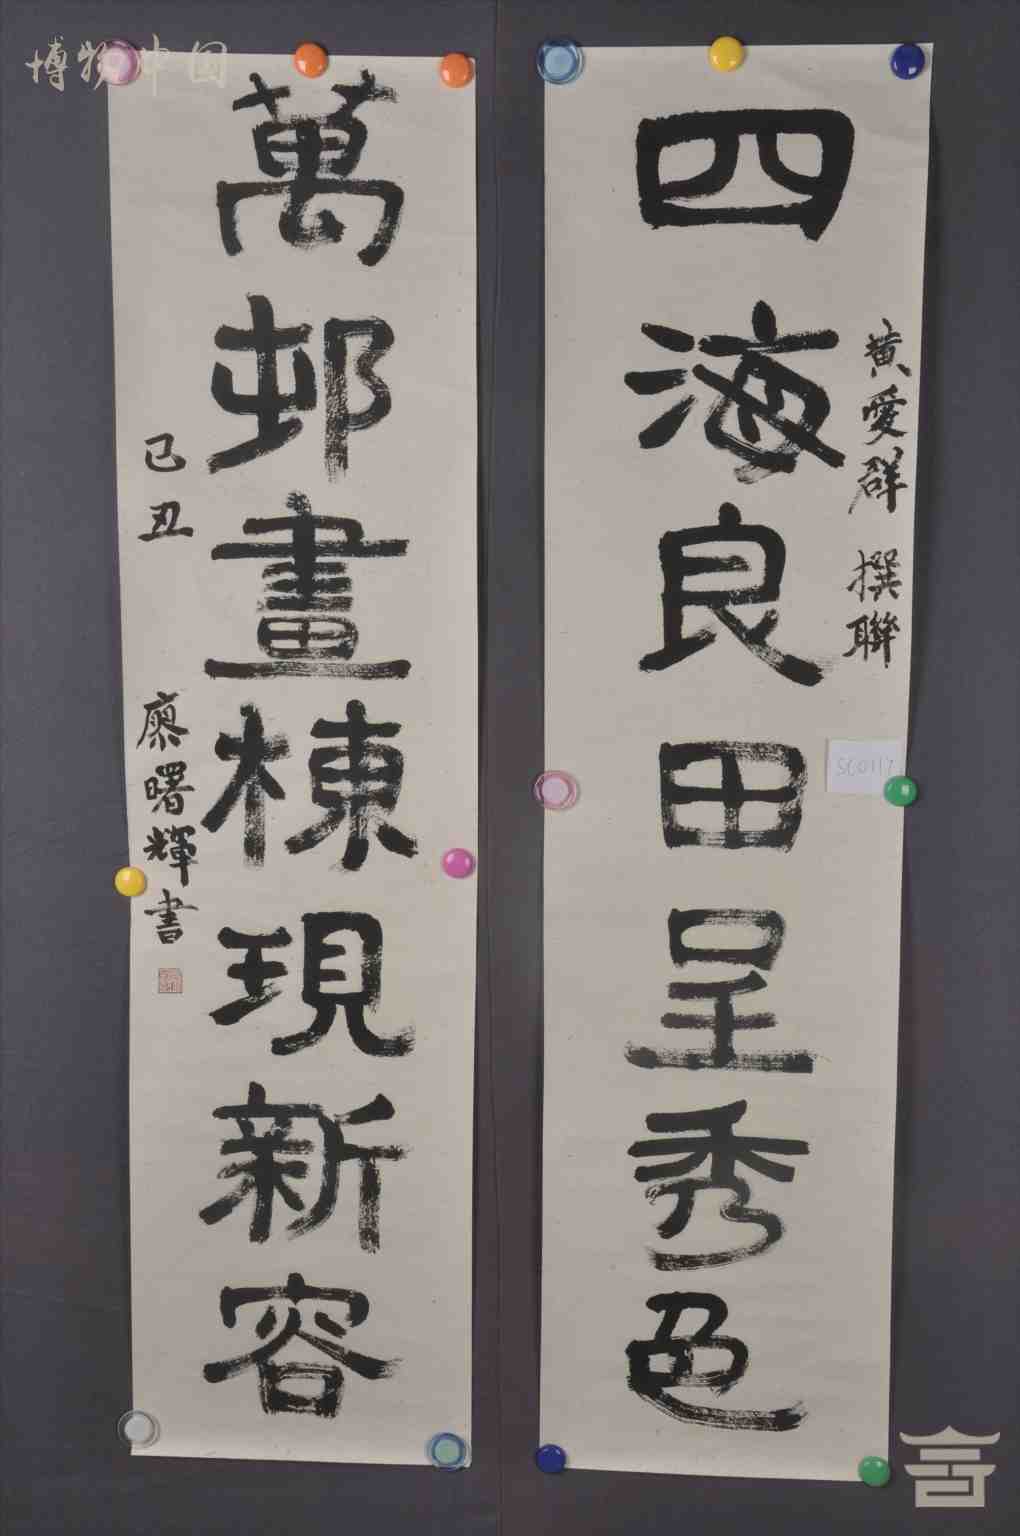 博物中国
黄愛群 撰聯
四海良田呈秀色
SC0117
萬邨畫棟現新容
己丑 廖曙輝書